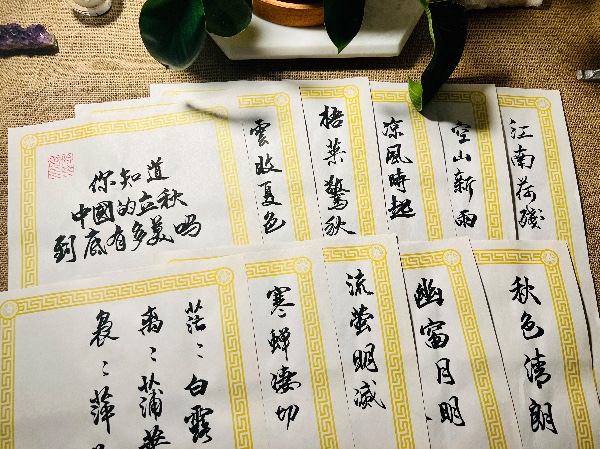 你知道
中國的立秋
到底有多美吗
雲收夏色
梧葉驚秋
凉風時起
空山新雨
江南荷殘
茫〻白露
离〻蒲
裊〻萍
寒蟬凄切
流萤明滅
幽窗月明
秋色清朗